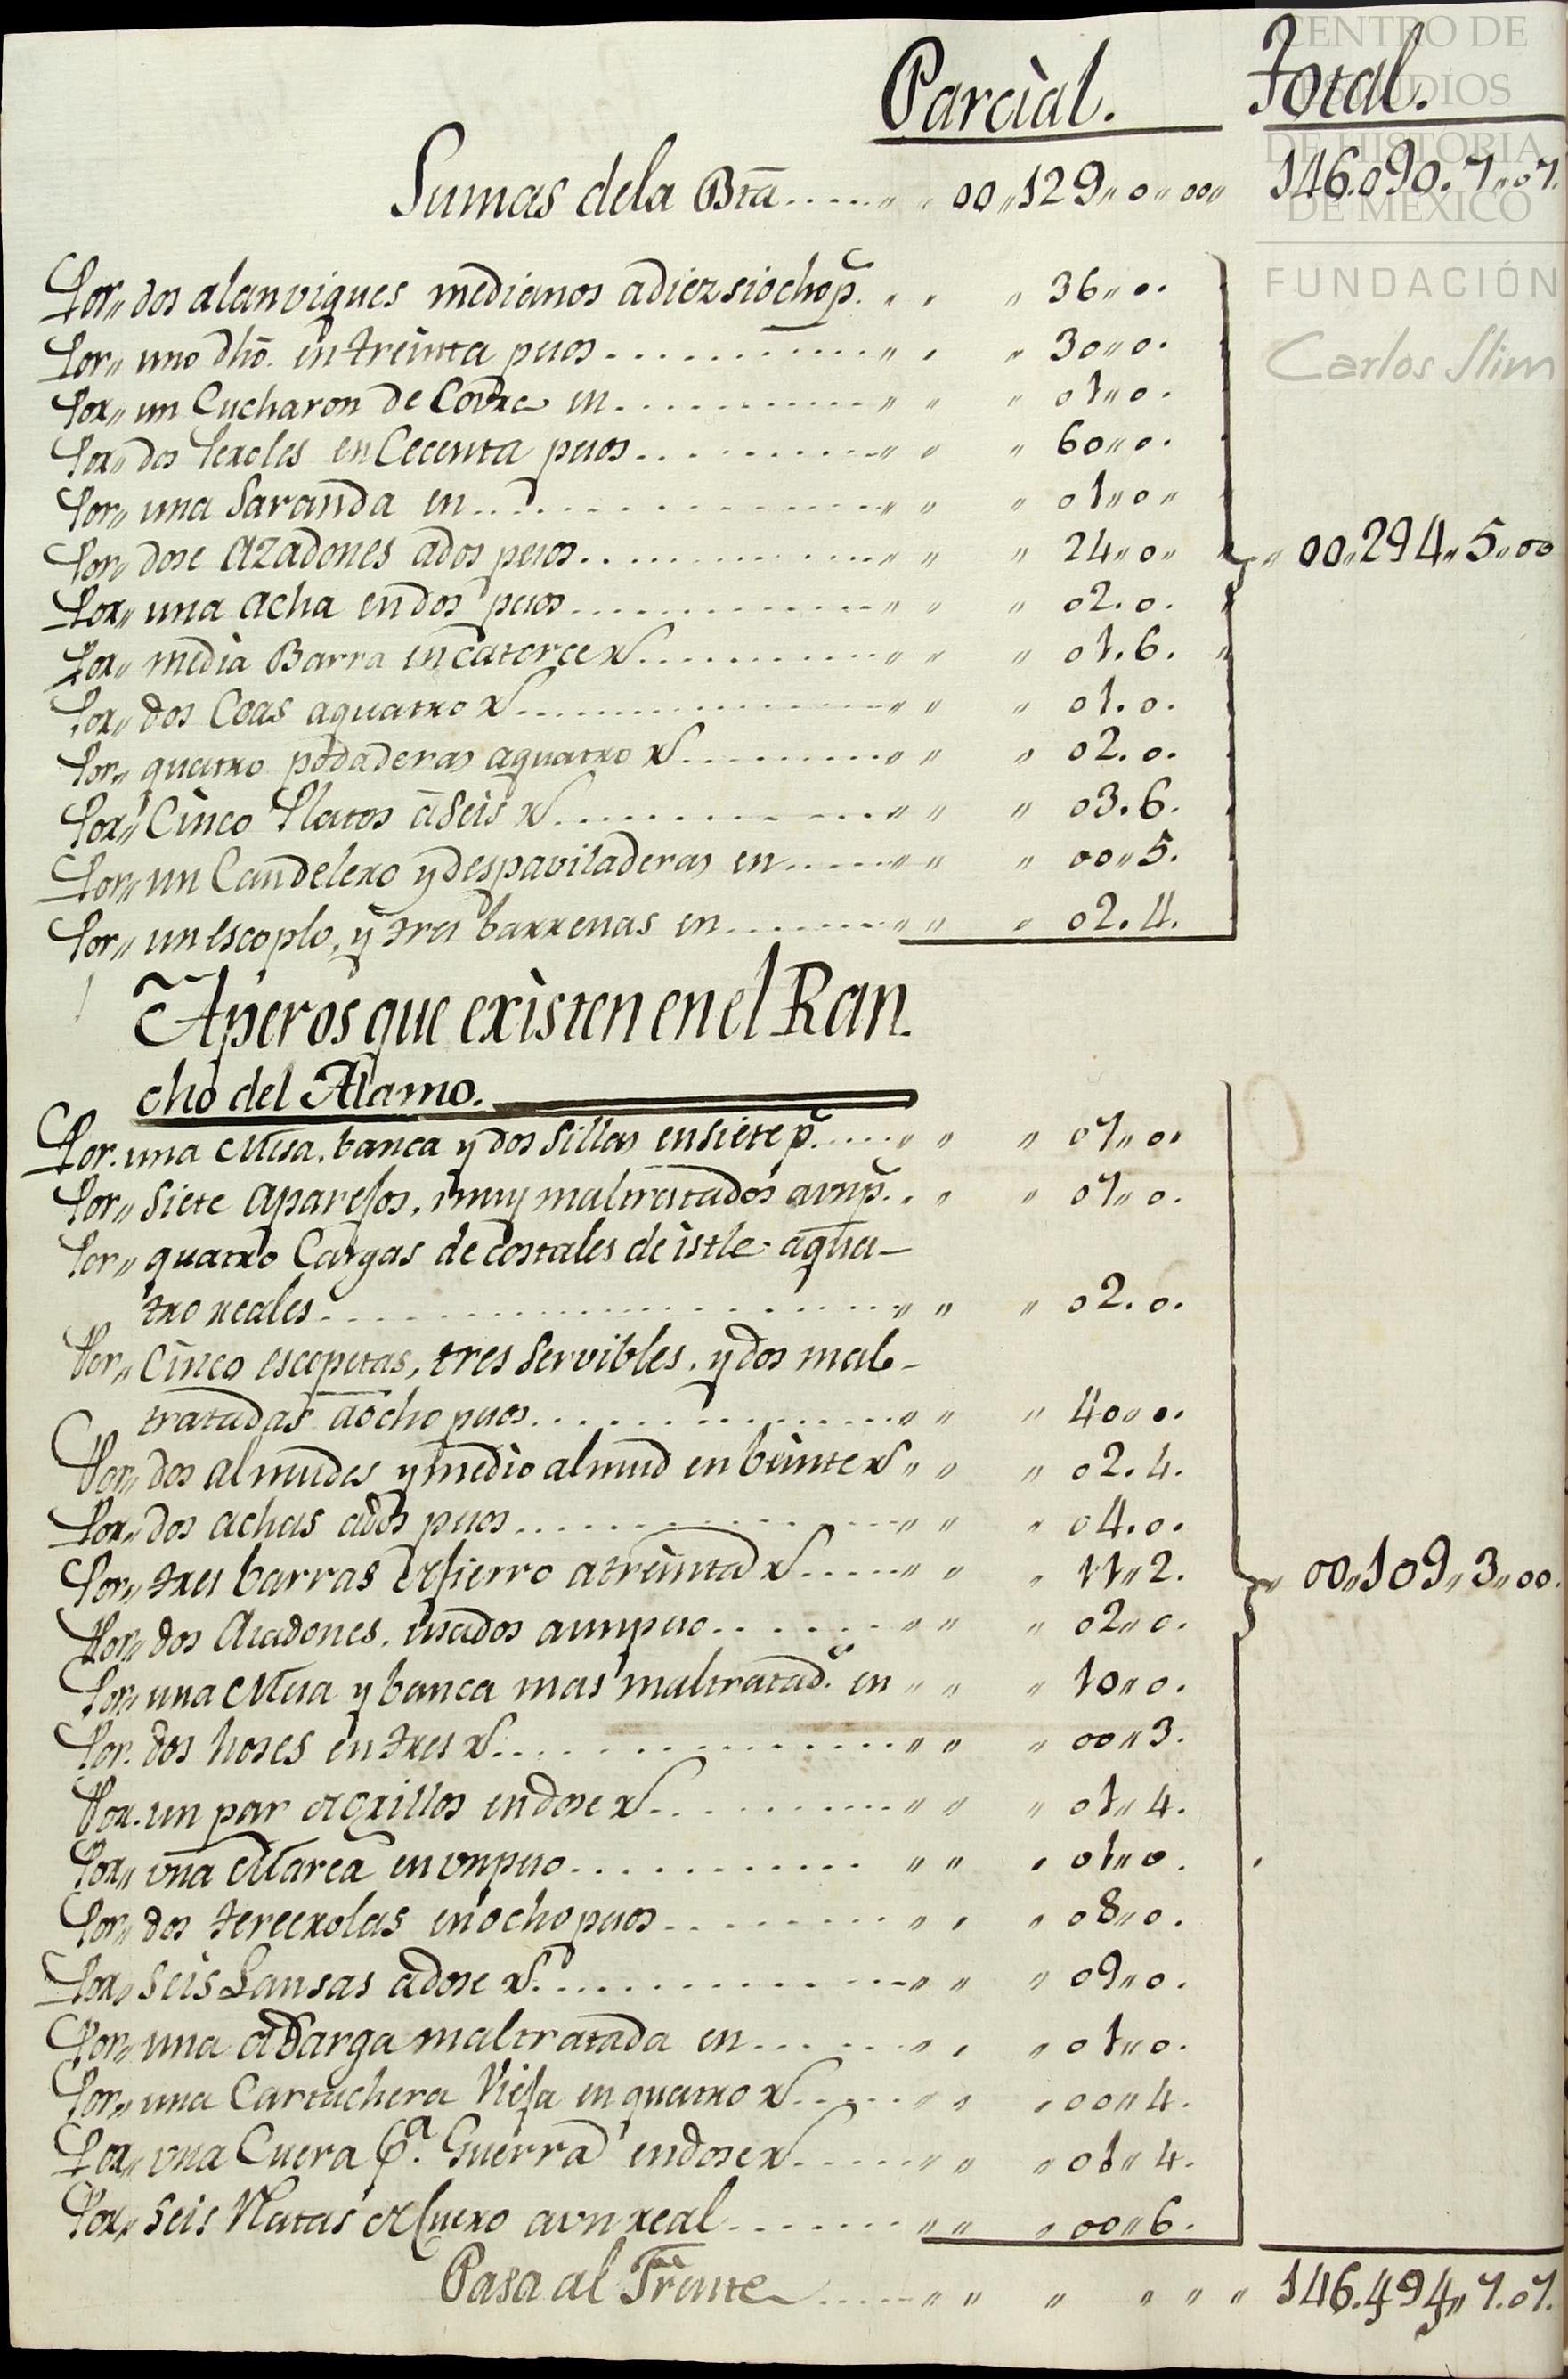 Parcial. Total.
Sumas dela Bta̅ ...... 00,,129,,0,,00,, 146.090.7,,07.
Por,, dos alanviques medianos adiezsiocho p̅. 36,,0.
Por,, uno dho̅. en treinta pesos 30,,0.
Por,, un Cucharon de Covre en 01,,0.
Por,, dos Peroles en Cecenta pesos 60,,0.
Por,, una Saranda en 01,,0,,
Por,, dose Azadones ados pesos 24,,0,, 00,,294,,5,,00
Por,, una acha en dos pesos 02.0.
Por,, media Barra en catorce r̅s 01.6.
Por,, dos Coas aquatro r̅s 01.0.
Por,, quatro podaderas aquatro r̅s 02.0.
Por,, Cinco Platos a Seis r̅s 03.6.
Por,, un Candelero y despaviladeras en 00,,5.
Por,, un escoplo, y tres barrenas en 02.4.
Aperos que existen en el Ran.
cho del Alamo.
Por. una Mesa, banca y dos Sillas en siete p̅ 07,,0.
Por,, Siete Aparejos, muy maltratados a un p̅. 07,,0.
Por,, quatro Cargas de costales de istle aqua-
tro reales 02.0.
Por,, Cinco escopetas, tres Servibles, y dos mal-
tratadas a ocho pesos 40,,0.
Por,, dos almudes y medio almud en beinte r̅s 02.4.
Por,, dos achas ados pesos 04.0.
Por,, tres barras de fierro a treinta r̅s 11,,2. 00,,109,,3,,00.
Por,, dos Asadones, usados a un peso 02,,0.
Por,, una Mesa y banca mas maltratad.s en 10,,0.
Por. dos hoses en tres r̅s 00,,3.
Por. un par de Grillos en dose r̅s 01,,4.
Por,, una Marca en un peso 01,,0.
Por,, dos tercerolas en ocho pesos 08,,0.
Por,, Seis Lansas a dose r̅s 09,,0.
Por,, una adarga maltratada en 01,,0.
Por,, una Cartuchera Vieja en quatro r̅s 00,,4.
Por,, una Cuera p.a Guerra en dose r̅s 01,,4.
Por,, Seis Natas de Cuero a un real 00,,6.
Pasa al Frente 146.494,,7.07.
CENTRO DE
ESTUDIOS
DE HISTORIA
DE MÉXICO
FUNDACIÓN
Carlos Slim